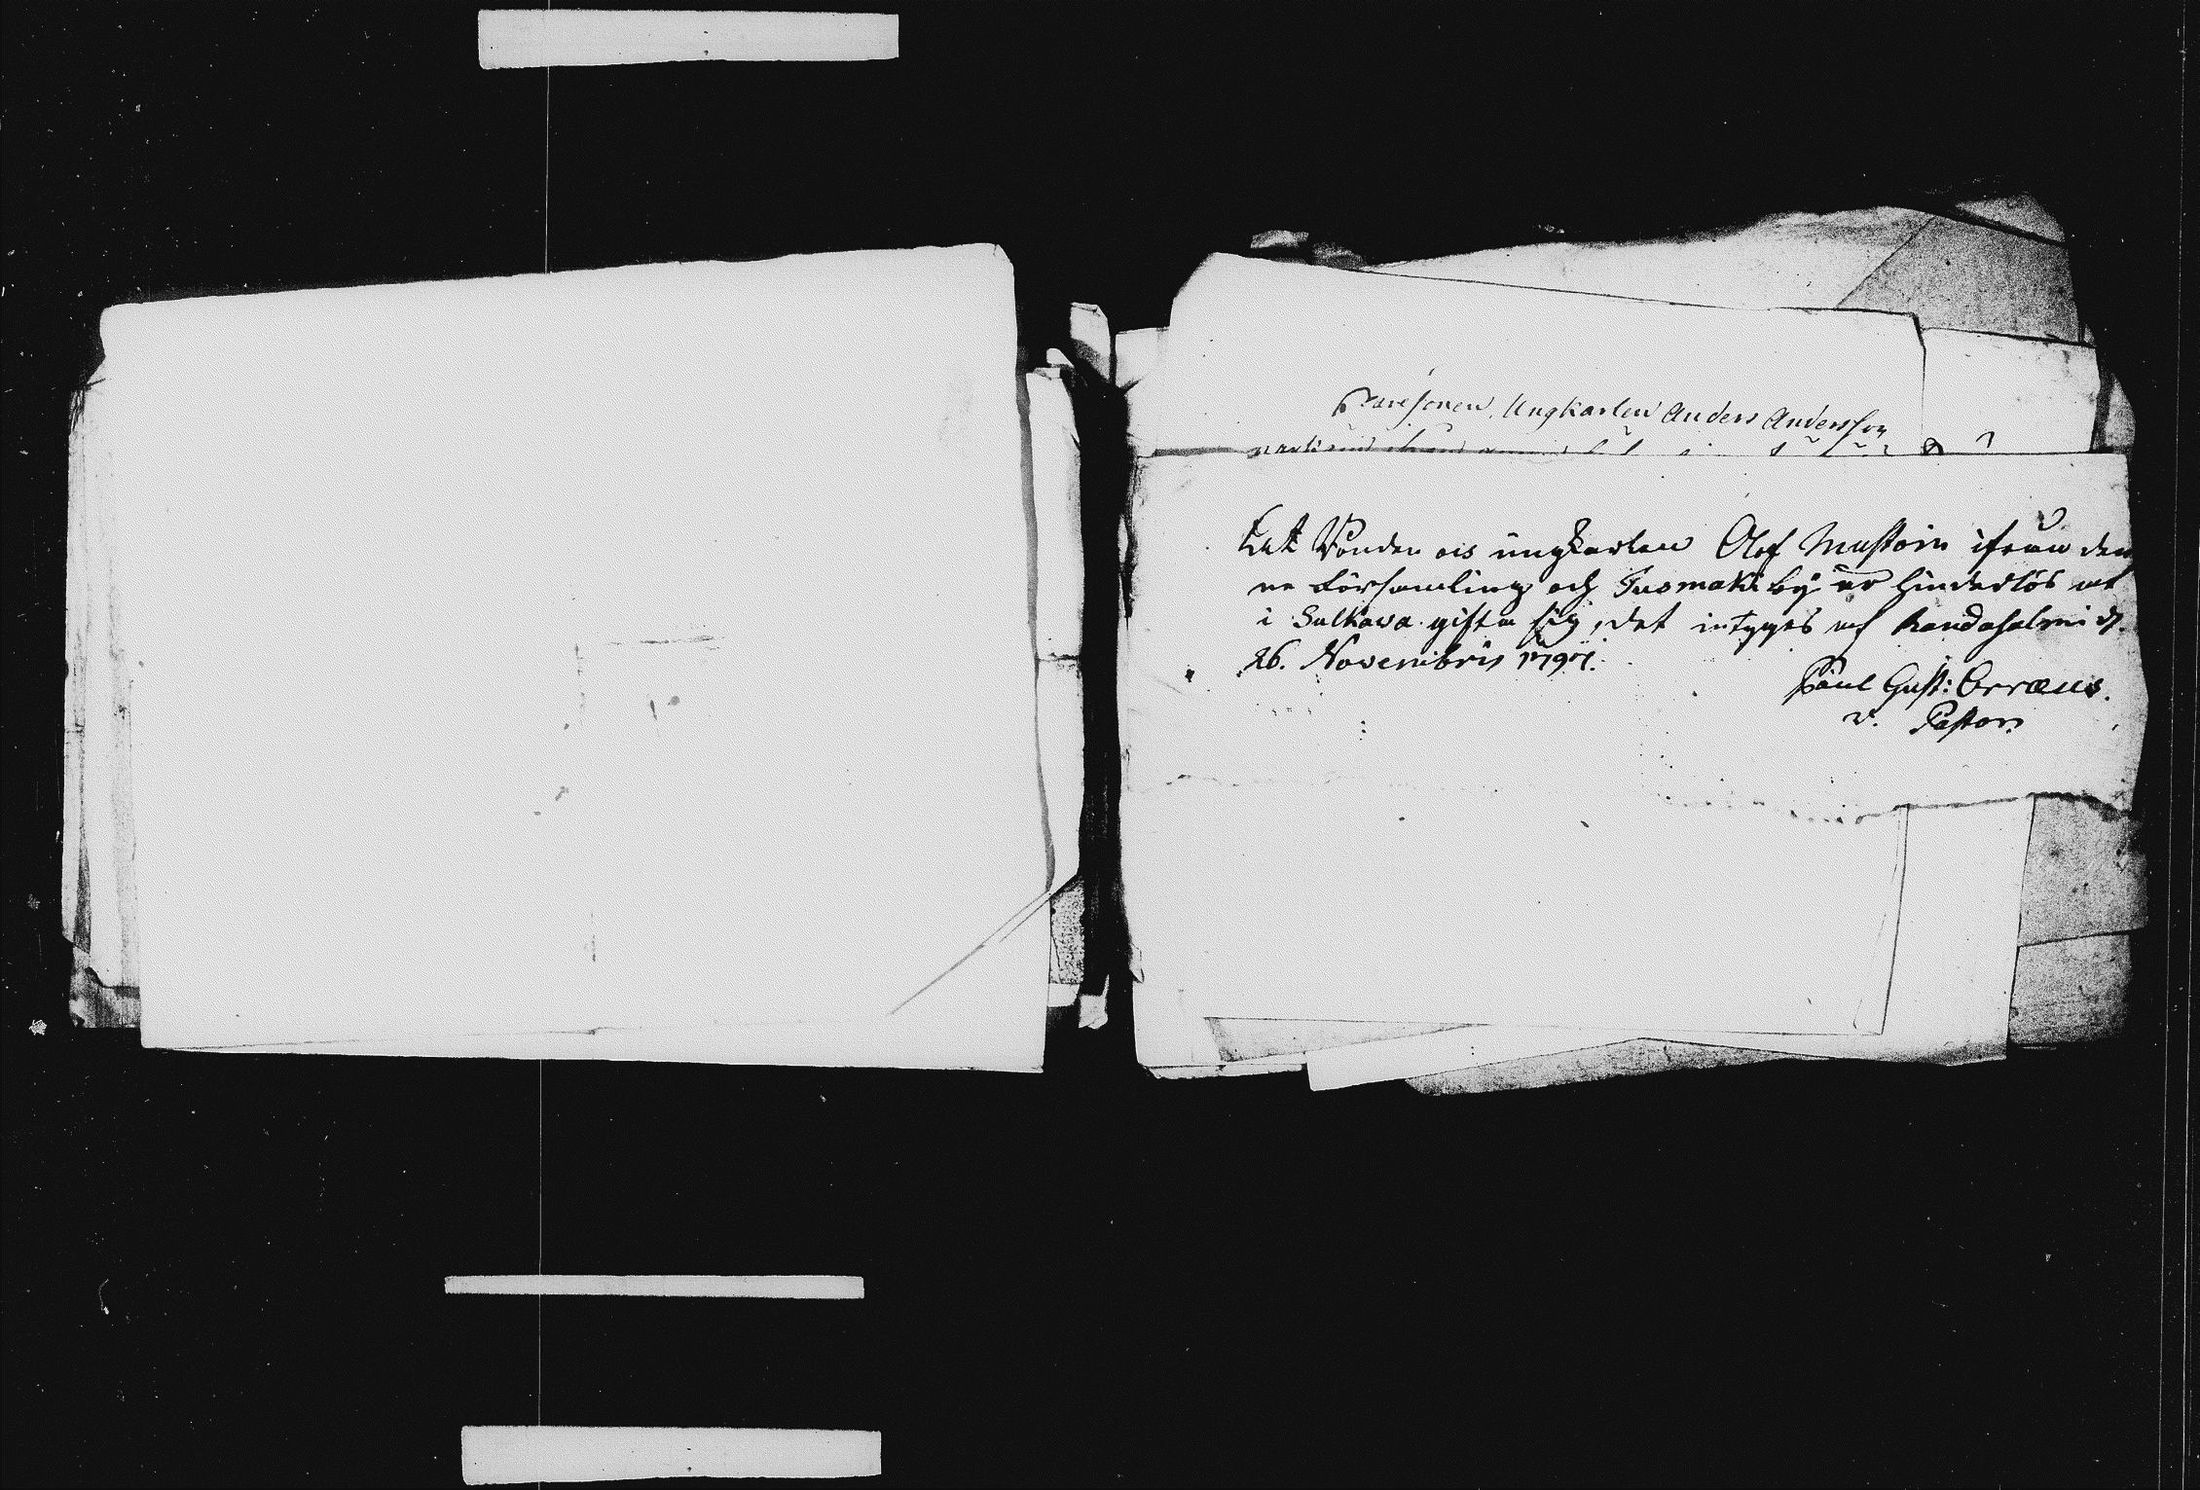 Ungkarlen Anders Andersson
Att Bonden och ungkarlen Olof Mustoin ifrån den
ne Församling och Tuomaki by är hinderlös att
i Sulkava gifta sig, det intygas af Randasalmi d.
26. Novembris 1797.
Paul Gust: Orræus.
v. Pastor